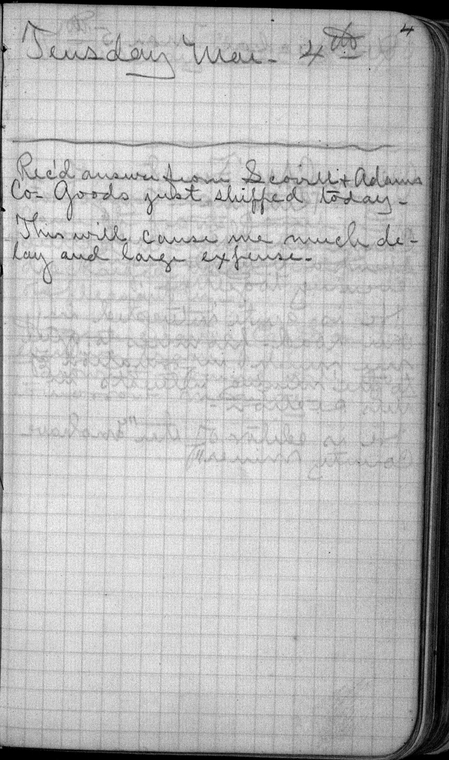 4
Teusday Mar. 4th
Rec'd answer from Scovill & Adams
Co- Goods just shipped today-
This will cause me much de-
lay and large expense-